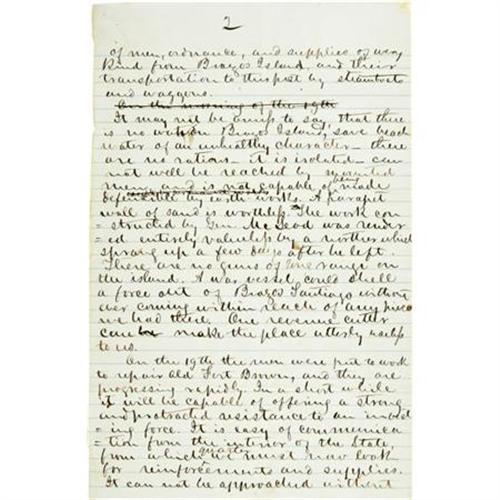 2
of men, ordnance, and supplies of every
kind from Brazos Island, and their
transportation to this post by steamboats
and waggons.
On the morning of the 19th
It may not be amiss to say, that there
is no wood on Brazos Island, save beach
water of an unhealthy character - there
are no rations - it is isolated - can
not well be reached by mounted
men, and is not capable of being made
defensible by earth works. A parapet
wall of sand is worthless. The work con
=structed by Gen. McLeod was render
=ed entirely valueless by a norther which
sprang up a few days after he left.
There are no guns of long range on
the island. A war vessel could shell
a force out of Brazos Santiago without
ever coming within reach of any piece
we had there. One revenue cutter
can make the place utterly useless
to us.
On the 19th the men were put to work
to repair old Fort Brown, and they are
progressing rapidly. In a short while
it will be capable of offering a strong
and protracted resistance to an invad
=ing force. It is easy of communica
=tion from the interior of the State,
from which quarter we must now look
for reinforcements and supplies.
It can not be approached without